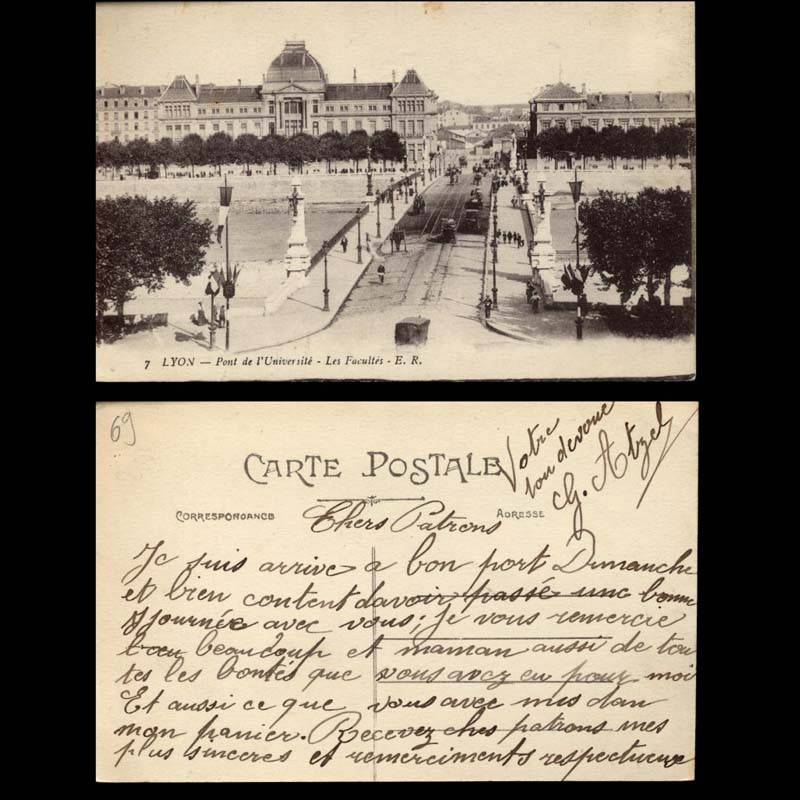 7 LYON — Pont de l'Université - Les Facultés - E. R.
69
CARTE POSTALE
CORRESPONDANCE
ADRESSE
Chers Patrons
Je suis arrive a bon port Dimanche
et bien content davoir passé une bonne
journée avec vous; je vous remercie
beaucoup et maman aussi de tou
tes les bontés que vous avez eu pour moi
Et aussi ce que vous avec mis dan
mon panier. Recevez ches patrons mes
plus sinceres et remerciments respectueux
Votre
tou devoue
Ch. Atzel